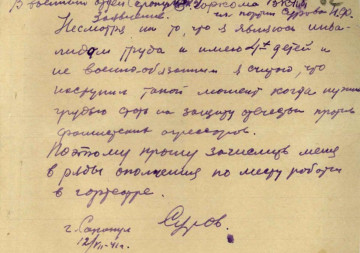 В военный отдел Сарапульск. Горкома ВКП(б)
чл. партии Сурова И.Ф.
Заявление.
Несмотря на то, что я являюсь инва-
лидом труда и имею 4х детей и
не военно-обязанным я считаю, что
наступил такой момент когда нужно
грудью стать на защиту отечества против
фашистских агрессоров.
Поэтому прошу зачислить меня
в ряды ополчения по месту работы
в
г. Сарапул
12/VII-41 г. Суров.